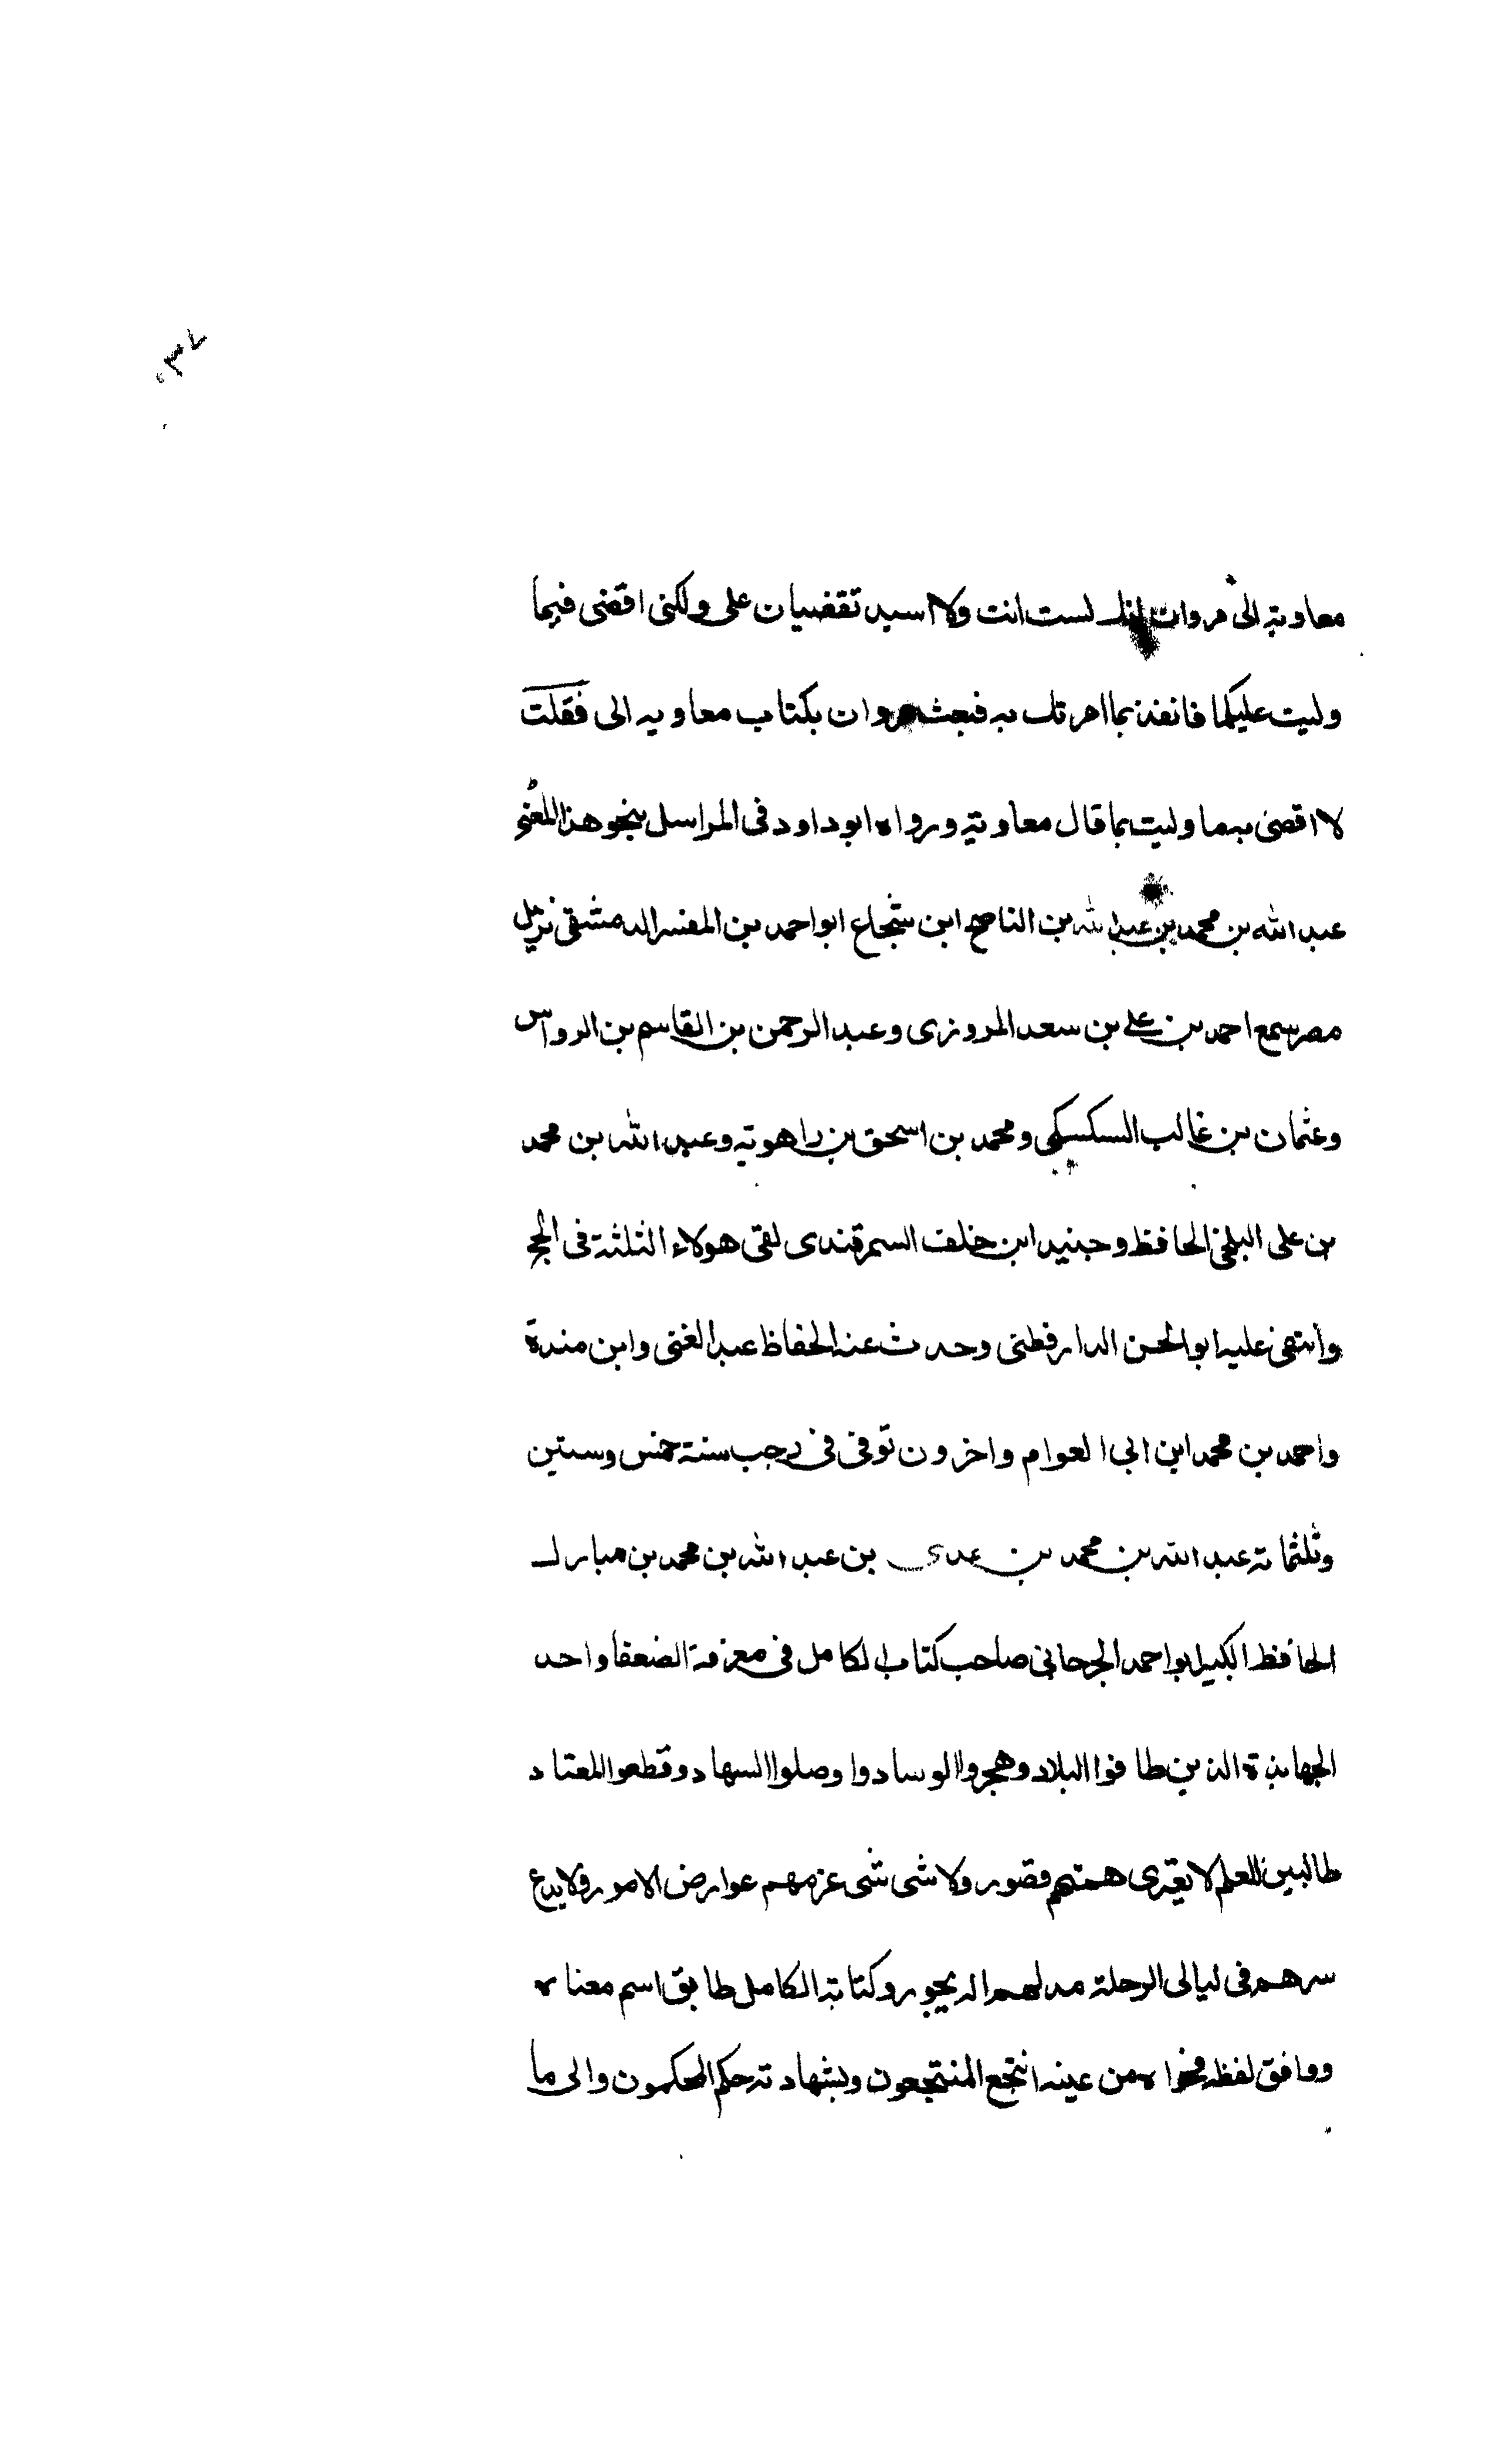 ٣٧
معاوية الى مروان انك لست انت ولا اسيد تقضيان على ولكنى اقضى فيما
وليت عليكما فانفذ بما امرتك به فبعث مروان بكتاب معاويه الى فقلت
لا اقضى به ما وليت بما قال معاوية ورواه ابو داود فى المراسل بنحو هذا اللفظ
عبد الله بن محمد بن عبد الله بن الناصح ابن شجاع ابو احمد بن المفسر الدمشقى نزيل
مصر سمع احمد بن على بن سعد المروزى وعبد الرحمن بن القاسم بن الرواس
وعثمان بن غالب السكسكى ومحمد بن اسحق بن راهوية وعبد الله بن محمد
بن على البلخى الحافظ وجنيد ابن خلف السمرقندى لقى هولاء الثلثة فى الحج
وانتقى عليه ابو الحسن الدارقطنى وحدث عنه الحفاظ عبد الغنى وابن مندة
واحمد بن محمد ابن ابى العوام واخرون توفى فى رجب سنة خمس وستين
وثلثمائة عبد الله بن محمد بن عدى بن عبد الله بن محمد بن مبارك
الحافظ الكبير ابو احمد الجرجانى صاحب كتاب الكامل فى معرفة الضعفا واحد
الجهابذة الذين طافوا البلاد وهجروا الوسادوا وصلوا السهاد وقطعوا المعتاد
طالبين للعلم لا يعترى همتهم قصور ولا شى شى عزمهم عوارض الامور ولا يدع
سرهم فى ليالى الرحلة مدلهم الديجور وكتابة الكامل طابق اسم معناه
ووافق لفظه فحواه من عينه انتجع المنتجعون وبشهادته حكم المحكمون والى ما